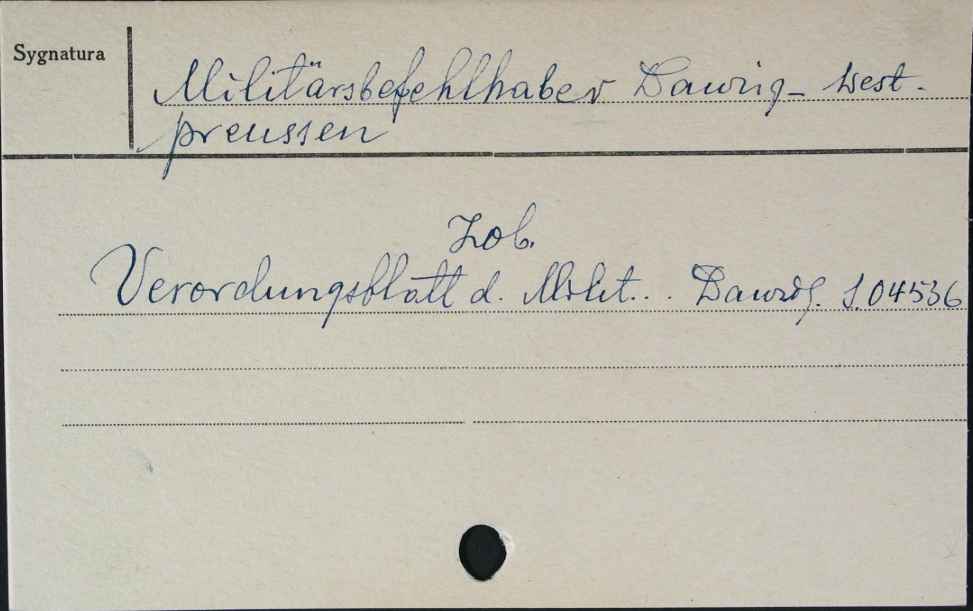 Sygnatura
Militärsbefehlhaber Danzig-West-
preussen
Zob.
Verordungsblatt d. Milit... Danzig. S.04536